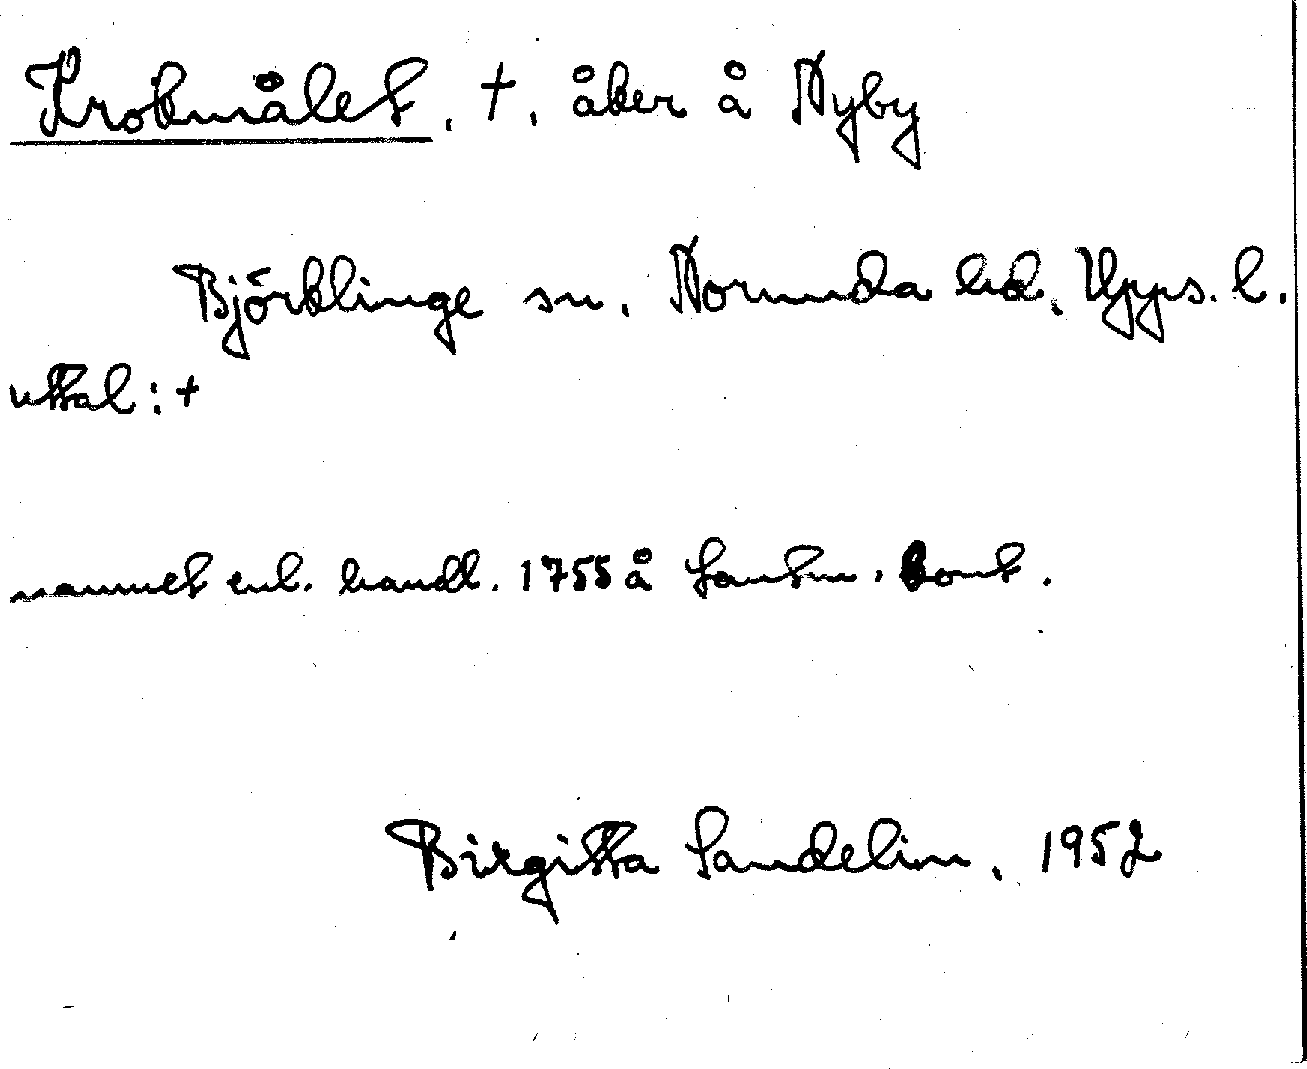 Krokmålet, +, åker å Nyby
Björklinge sn, Norunda hd, Upps. l.
uttal: +
namnet enl. handl. 1755 å Lantm. kont.
Birgitta Sandelin, 1952